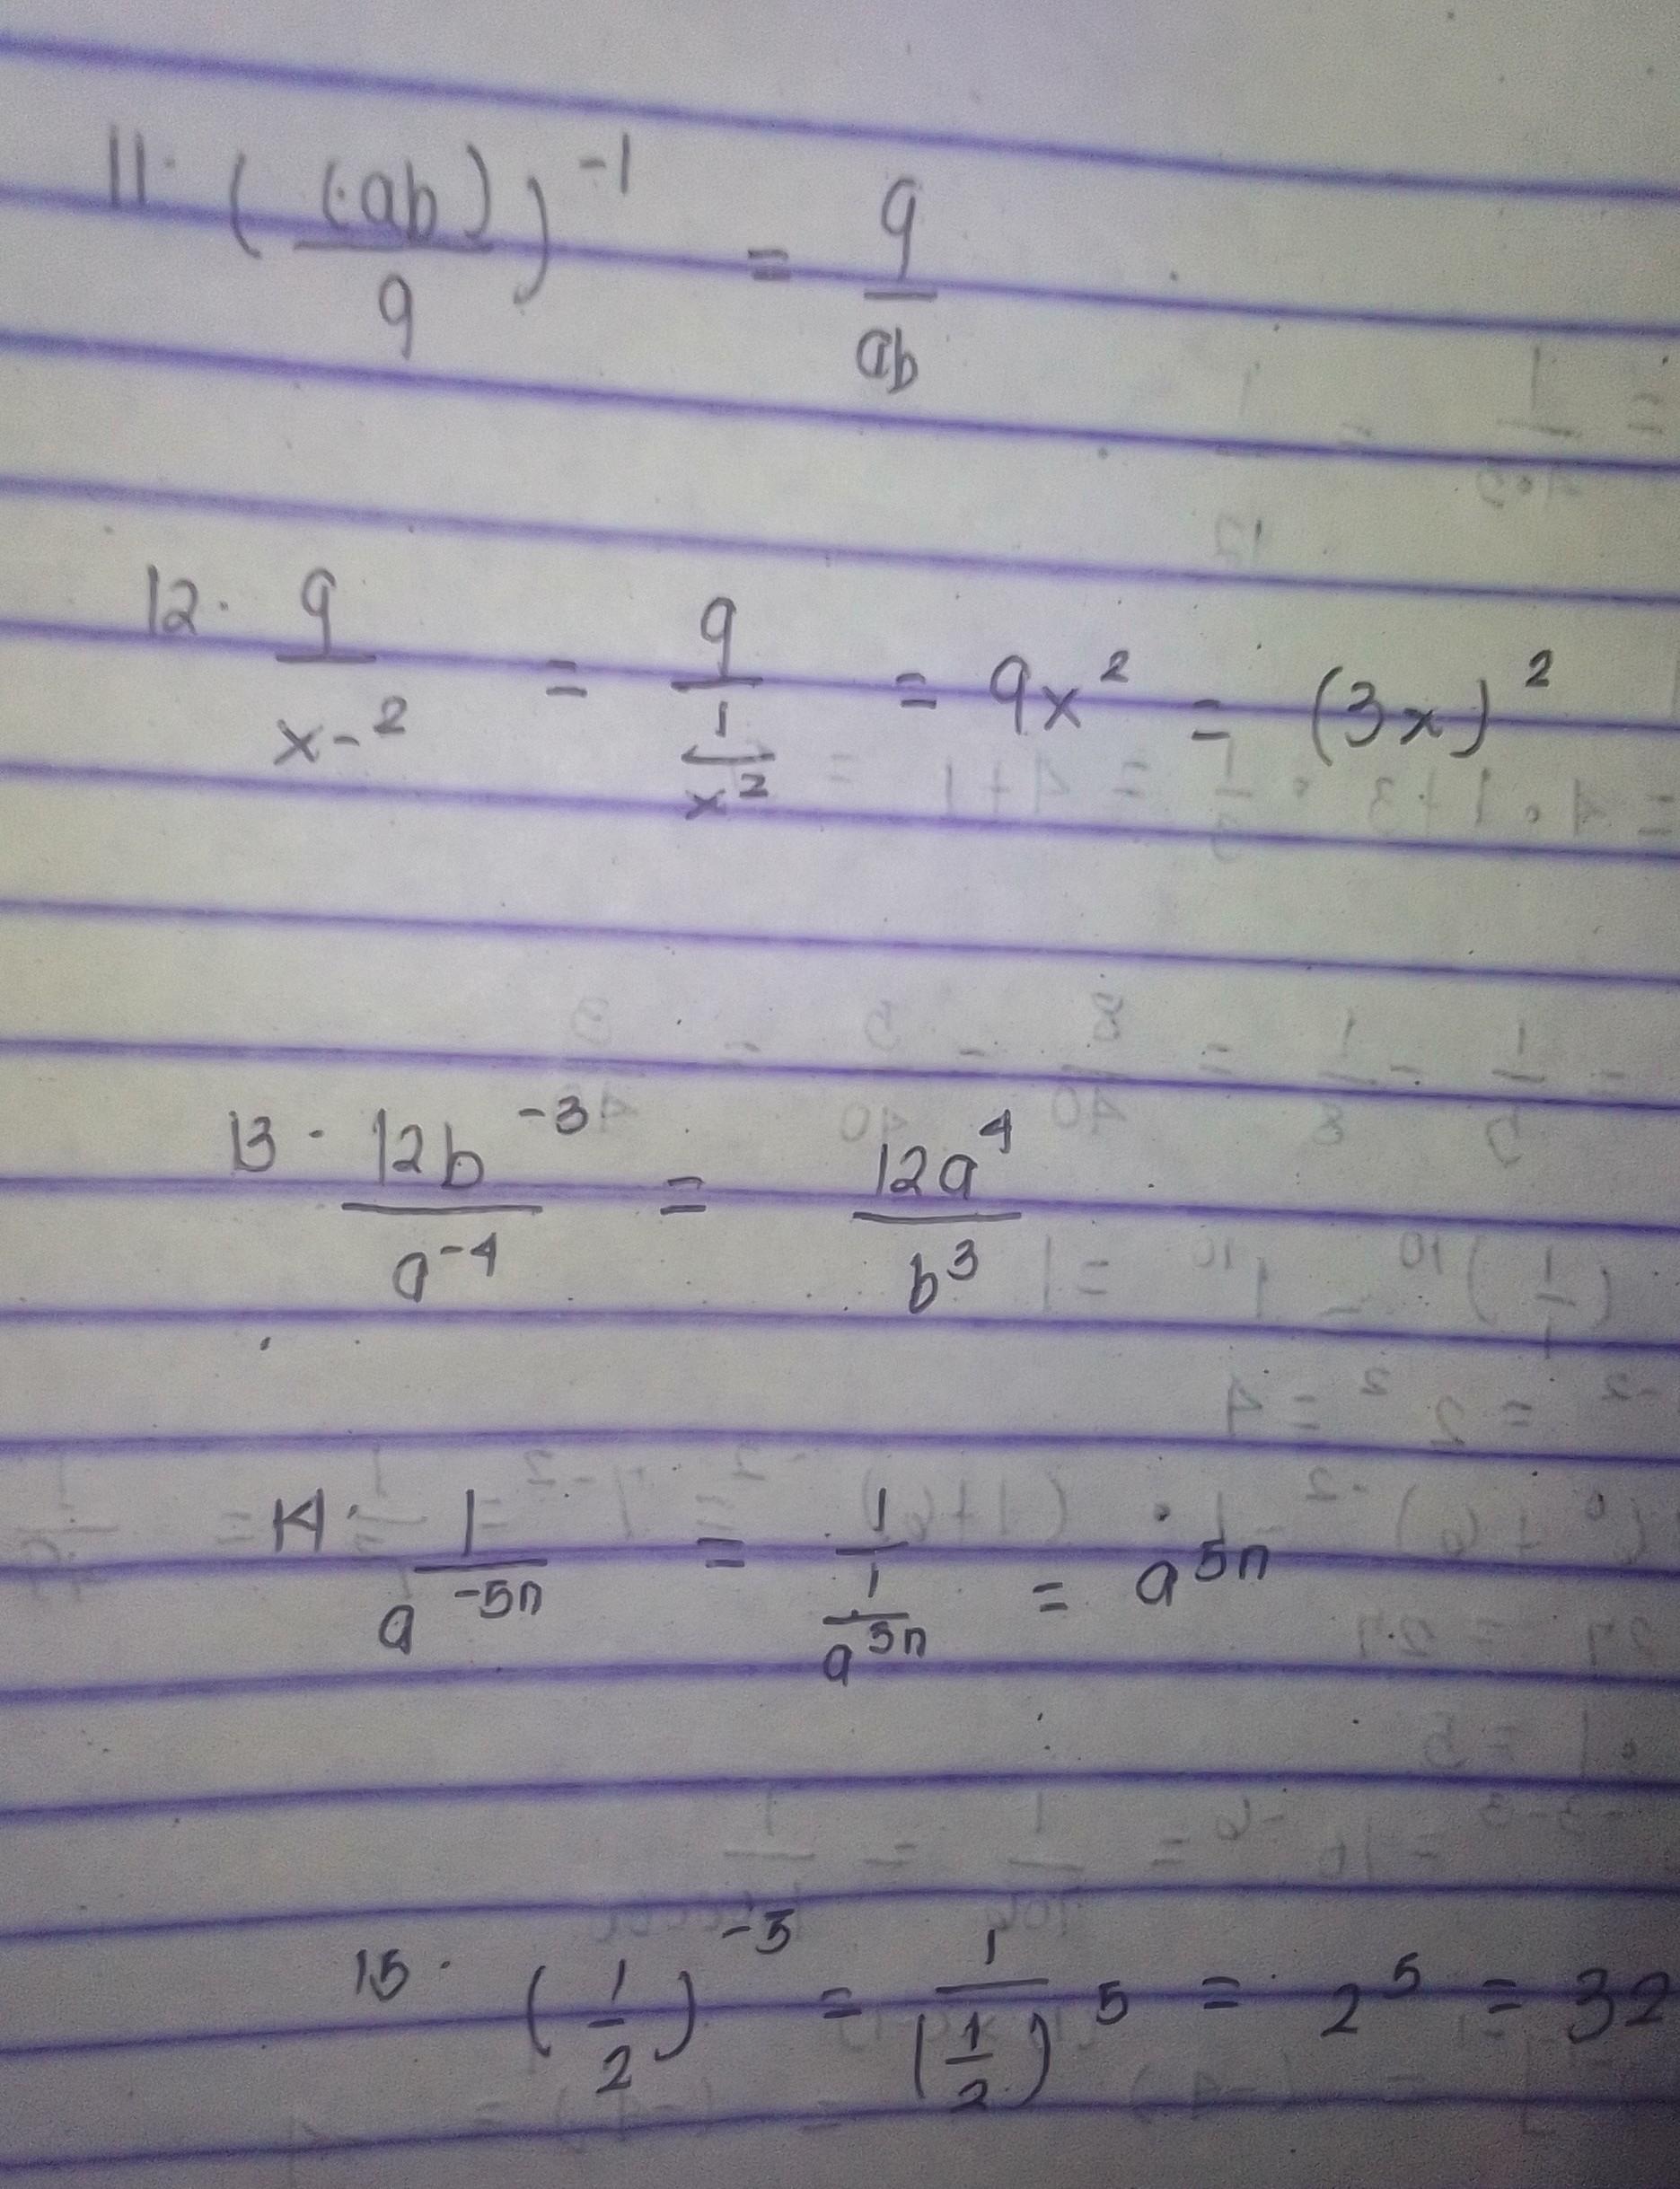 11. ((ab)/9)^-1 = 9/ab
12. 9/x^-2 = 9/(1/x^2) = 9x^2 = (3x)^2
13. 12b^-3/a^-4 = 12a^4/b^3
14. 1/a^-5n = 1/(1/a^5n) = a^5n
15. (1/2)^-5 = 1/(1/2)^5 = 2^5 = 32